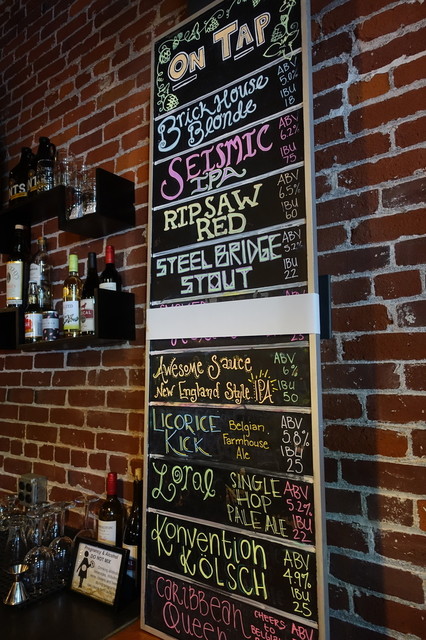 ON TAP
Brick House
Blonde
ABV
5.0%
IBU
18
SEISMIC
IPA
ABV
6.2%
IBU
75
RIPSAW
RED
ABV
6.5%
IBU
60
STEEL BRIDGE
STOUT
ABV
5.2%
IBU
22
Awesome Sauce
New England Style IPA
ABV
6%
IBU
50
LICORICE
KICK
Belgian
Farmhouse
Ale
ABV
5.8%
IBU
25
Loral
SINGLE
HOP
PALE ALE
ABV
5.2%
IBU
22
Konvention
KÖLSCH
ABV
4.9%
IBU
25
Caribbean
Queen
CHEERS
TO
BELIZE
ABV
Pregnancy & Alcohol
DO NOT MIX